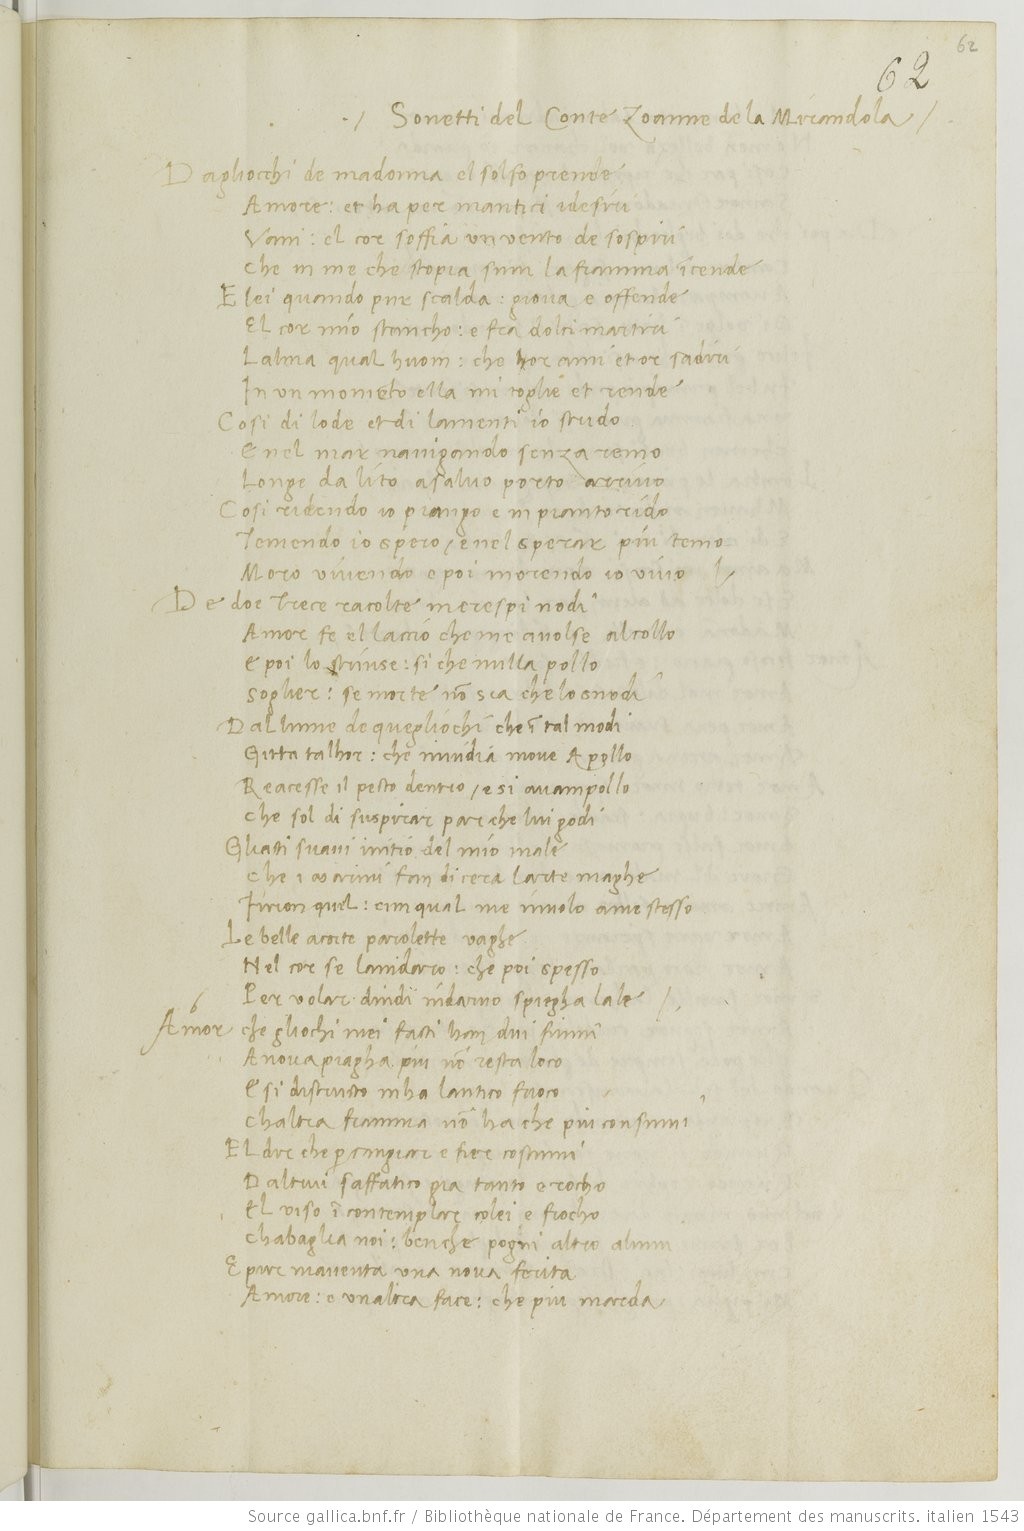 62
62
Sonetti del Conte Zoanne de la Mirandola
Dagliocchi de madonna el solfo prende
Amore: et ha per mantici idesiri
Vani: el cor soffia un vento de sospiri
Che in me che stopia sum la fiamma īcende
E lei quando pur scalda: giova e offende
El cor mio stancho: e fra dolci martiri
Lalma qual huom: che hor ami et or sadiri
In un momēto ella mi toglie et rende
Cosi di lode et di lamenti io strido
E nel mar navigando senza remo
Longe da lito a salvo porto arrivo
Cosi ridendo io piango e in pianto rido
Temendo io spero / e nel sperar piu temo
Moro vivendo e poi morendo io vivo
De doe trece racolte in crespi nodi
Amor fe el laccio che me avolse al collo
E poi lo strinse: si che nulla pollo
Soglier: se morte nō sia che lo snodi
Dal lume de quegliochi che ī tal modi
Gitta talhor: che invidia move Apollo
Reacesse il pecto dentro / e si avampollo
Che sol di suspirar par che lui godi
Gliacti suavi initio del mio male
Che i marini fan di cera larte maghe
Furon quel: cum qual me involo a me stesso
Le belle acorte parolette vaghe
Nel cor se lanidaro: che poi spesso
Per volar dindi indarno spiegha lale
Amor che gliochi mei facti han dui fiumi
A nova piagha piu nō resta loco
E si distructo mha lantico fuoco
Chaltra fiamma nō ha che piu consumi
El dir che p cangiar e fier costumi
Daltrui saffatico gia tanto e rocho
El viso ī contemplar colei e fiocho
Chabaglia noi: benche poghi altro alumi
E pur maventa una nova ferita
Amore: e unaltra face: che piu marda
Source gallica.bnf.fr / Bibliothèque nationale de France. Département des manuscrits. italien 1543